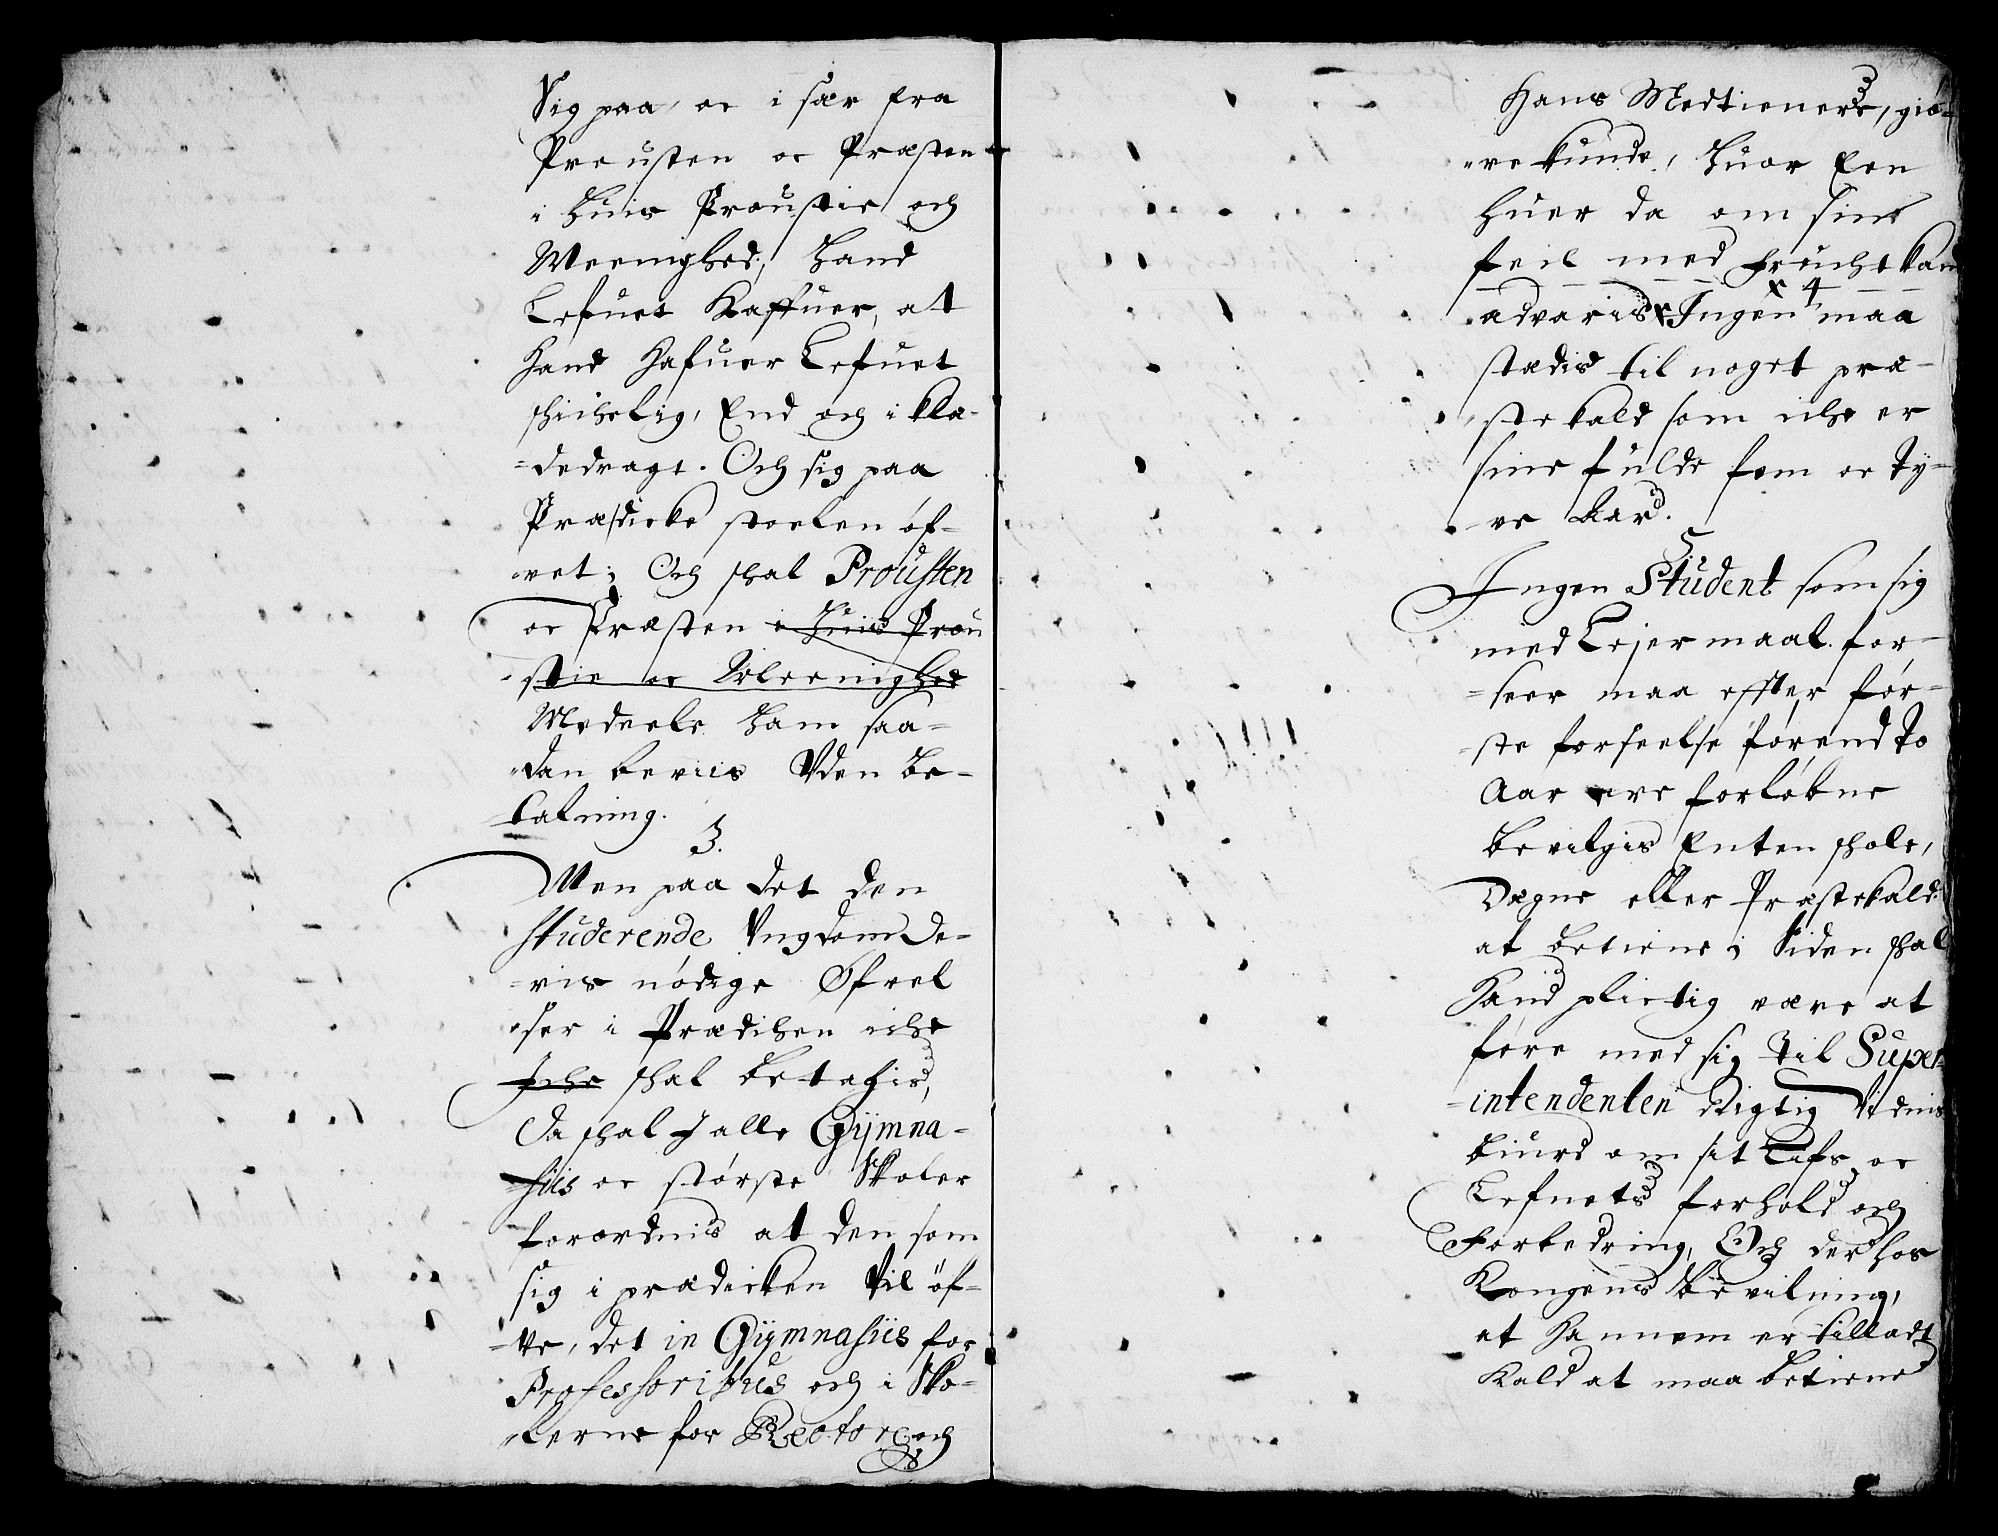 Sig paa, oc i sær fra
Prousten oc Præsten
i huis Proustie och
Meenighed, hand
Lefuet haffuer, at
hand hafuer Lefuet
schichelig, End och i klæ-
=dedragt. Och sig paa
Prædicke stoelen øf-
vet; Och skal Prousten
oc Præsten i huis Prou
stie oc Meenighed
Meddeele ham saa-
dan beviis Uden be-
talning.
3.
Men paa det den
studerende Ungdom de-
=ris nödige Øfvel
ser i Prædiken iche
Iche skal betagis,
Da skal I alle Gymna-
siis oc störste Skoler
forordnis at den som
sig i prædicken Vil öf-
ve, det in Gymnasiis for
Professoribus och i Sko-
lerne for Rectore och
Hans Medtienere, giö-
re kunde, huor Een
huer da om sine
feil med frucht kand
advaris x Ingen maa
x 4
stædis til noget præ-
ste kald som iche er
sine fulde fem oc ty-
ve Aar.
5
Ingen Student som sig
med Lejermaal for-
=seer maa effter för-
=ste forseelse förend to
Aar ere forløbne
bevilgis Enten skole,
Degne eller Præstekald
at betiene; Siden skal
Hand plictig være at
føre med sig til Super-
=intendenten digtig Vidnis
biurd om sit Lifs oc
Lefnets forhold och
Forbedring, Och der hos
Kongens Bevilning,
at hannem er tilladt
Kald at maa betiene